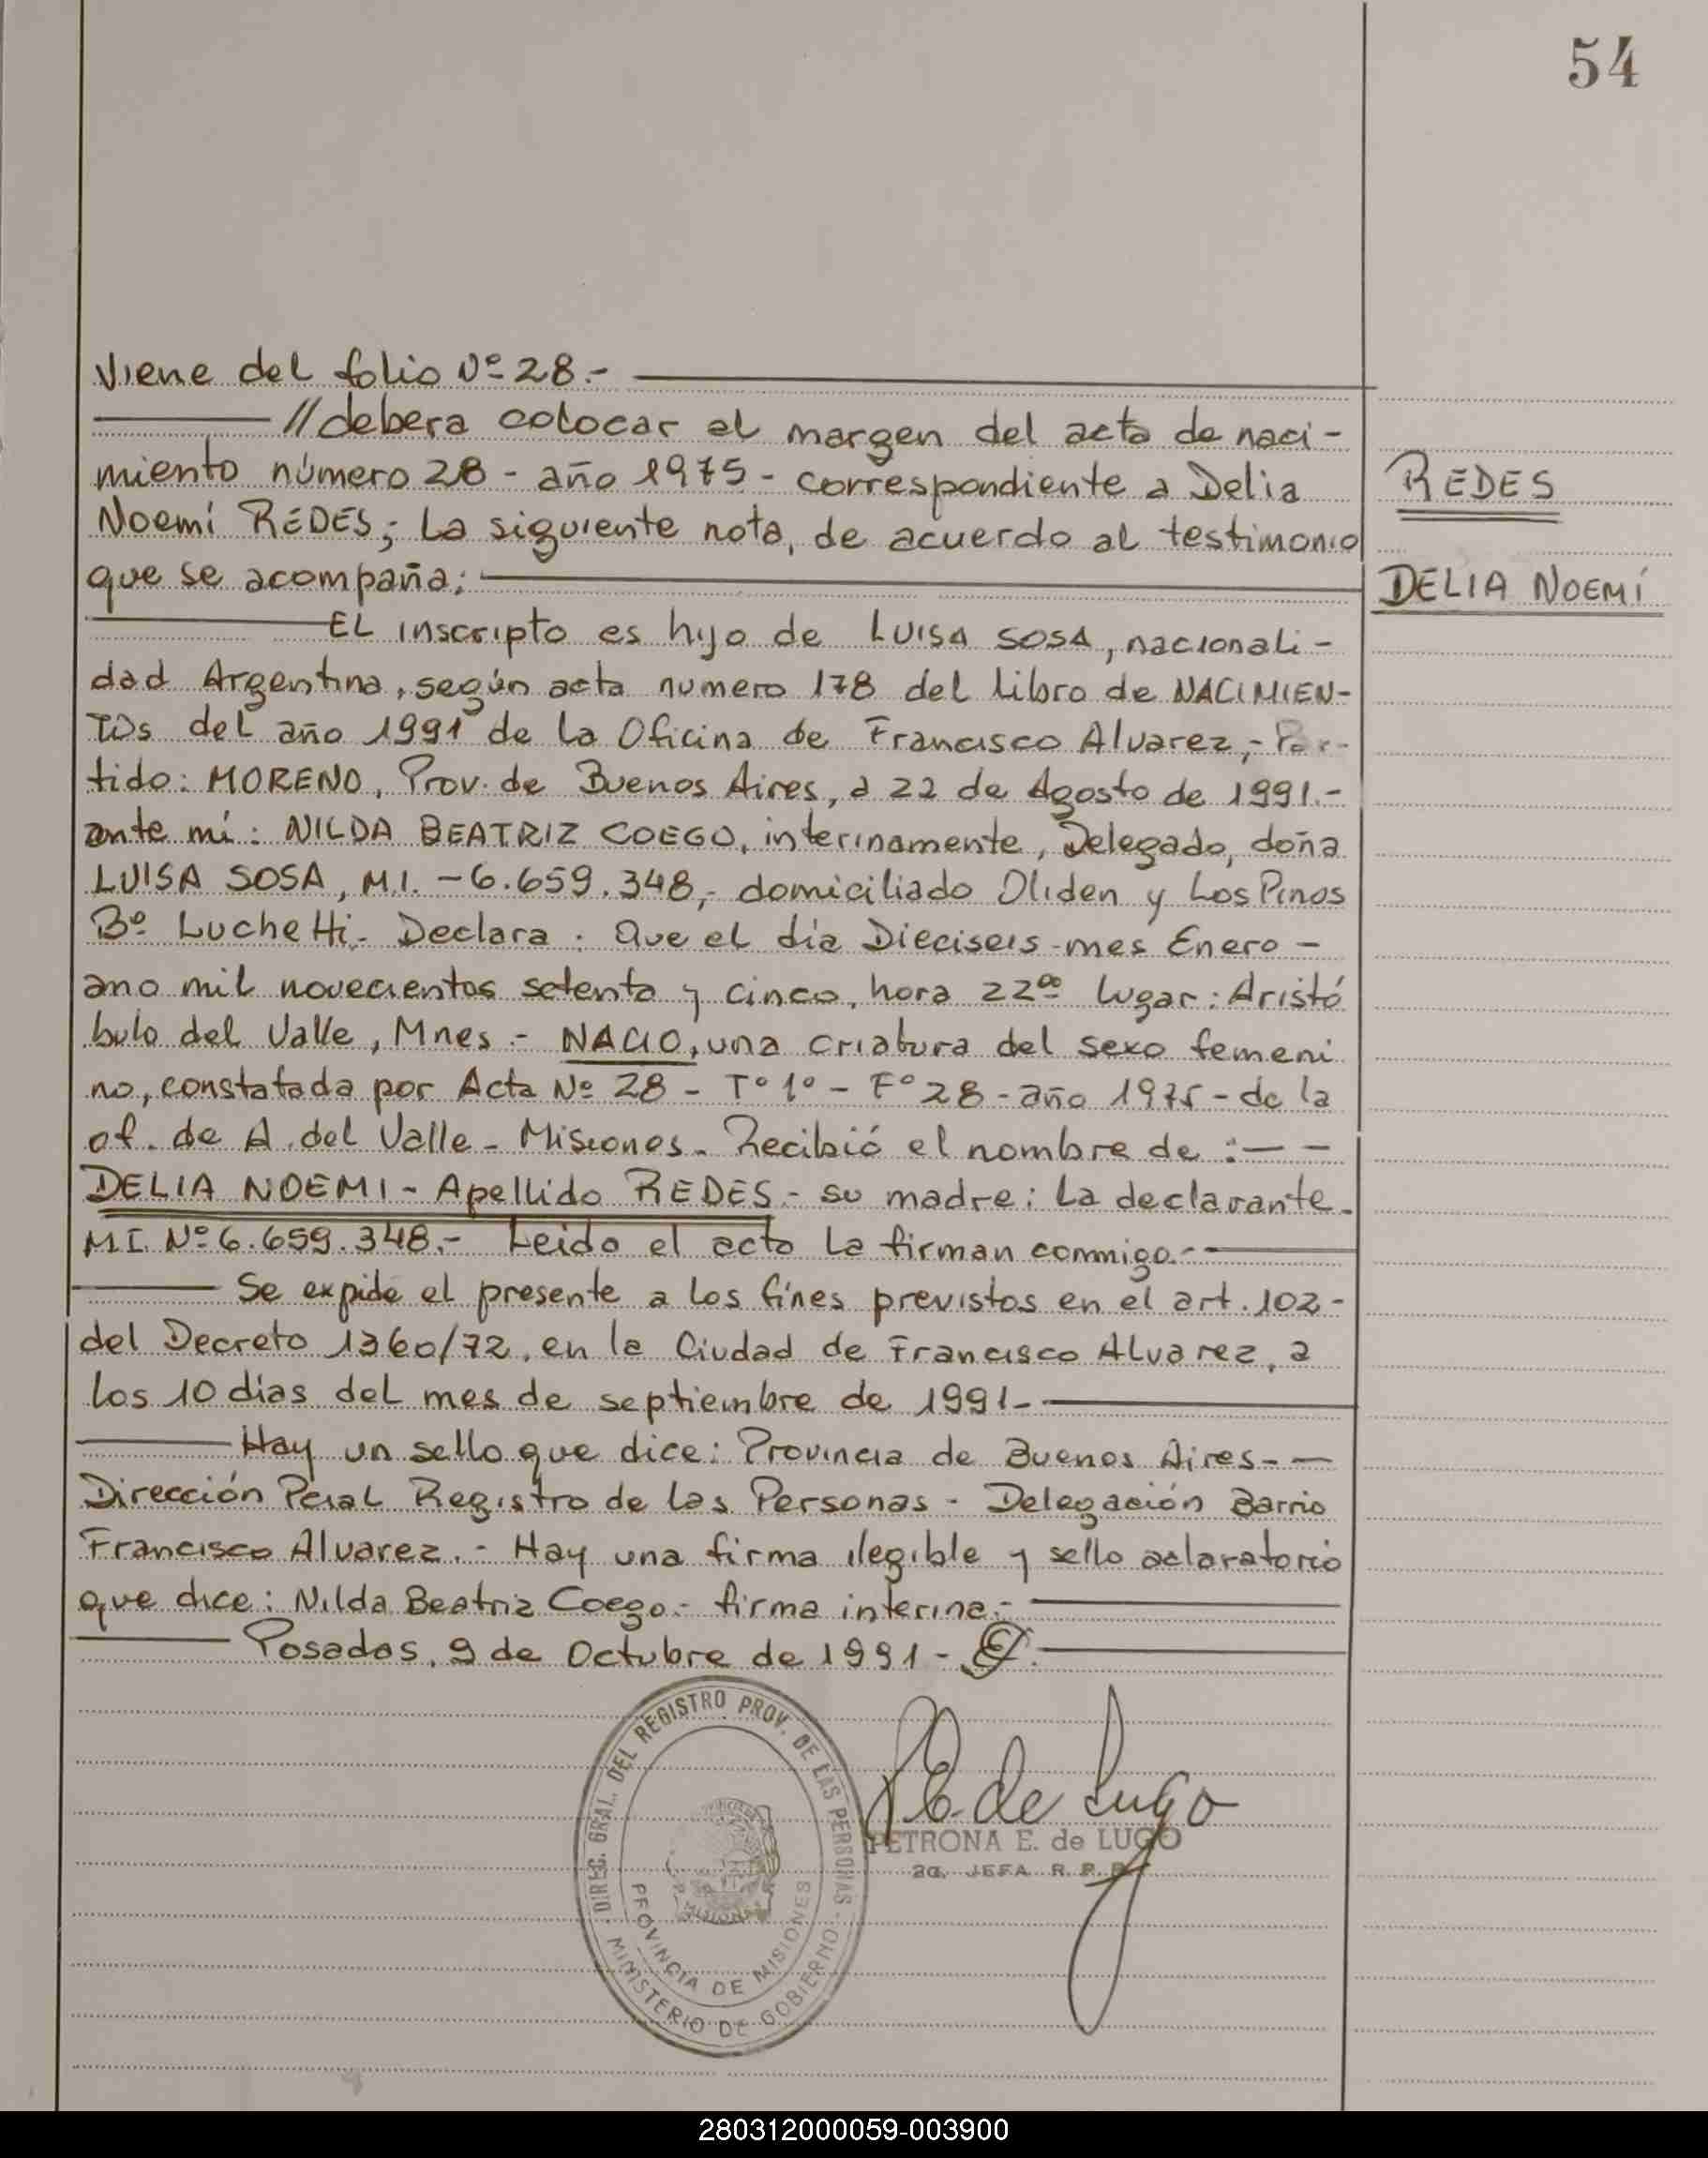 54
Viene del folio Nº 28.-
//debera colocar al margen del acta de naci-
miento número 28 - año 1975 - correspondiente a Delia
Noemí REDES; La siguiente nota, de acuerdo al testimonio
que se acompaña:
REDES
DELIA NOEMÍ
EL inscripto es hijo de LUISA SOSA, nacionali-
dad Argentina, según acta numero 178 del libro de NACIMIEN-
TOS del año 1991 de la Oficina de Francisco Alvarez,- Par-
tido: MORENO, Prov. de Buenos Aires, a 22 de Agosto de 1991.-
ante mí: NILDA BEATRIZ COEGO, interinamente, Delegado, doña
LUISA SOSA, M.I. - 6.659.348,- domiciliado Oliden y Los Pinos
Bº Luchetti.- Declara: Que el día Dieciseis - mes Enero -
ano mil novecientos setenta y cinco, hora 22ºº lugar: Aristó
bulo del Valle, Mnes - NACIO, una criatura del sexo femeni
no, constatada por Acta Nº 28 - Tº 1º - Fº 28 - año 1975 - de la
of. de A. del Valle - Misiones. Recibió el nombre de : - -
DELIA NOEMI - Apellido REDES.- su madre: La declarante.
MI. Nº 6.659.348.- Leido el acto La firman conmigo.-
Se expide el presente a los fines previstos en el art. 102-
del Decreto 1360/72, en la Ciudad de Francisco Alvarez, a
los 10 dias del mes de septiembre de 1991.-
Hay un sello que dice: Provincia de Buenos Aires.- -
Dirección Pcial Registro de las Personas - Delegación Barrio
Francisco Alvarez. - Hay una firma ilegible y sello aclaratorio
que dice: Nilda Beatriz Coego.- firma interina.-
Posadas, 9 de Octubre de 1991 -
DIREC. GRAL. DEL REGISTRO PROV. DE LAS PERSONAS
MINISTERIO DE GOBIERNO
PROVINCIA DE MISIONES
P.E. de Lugo
PETRONA E. de LUGO
2a. JEFA R. P. P.
280312000059-003900